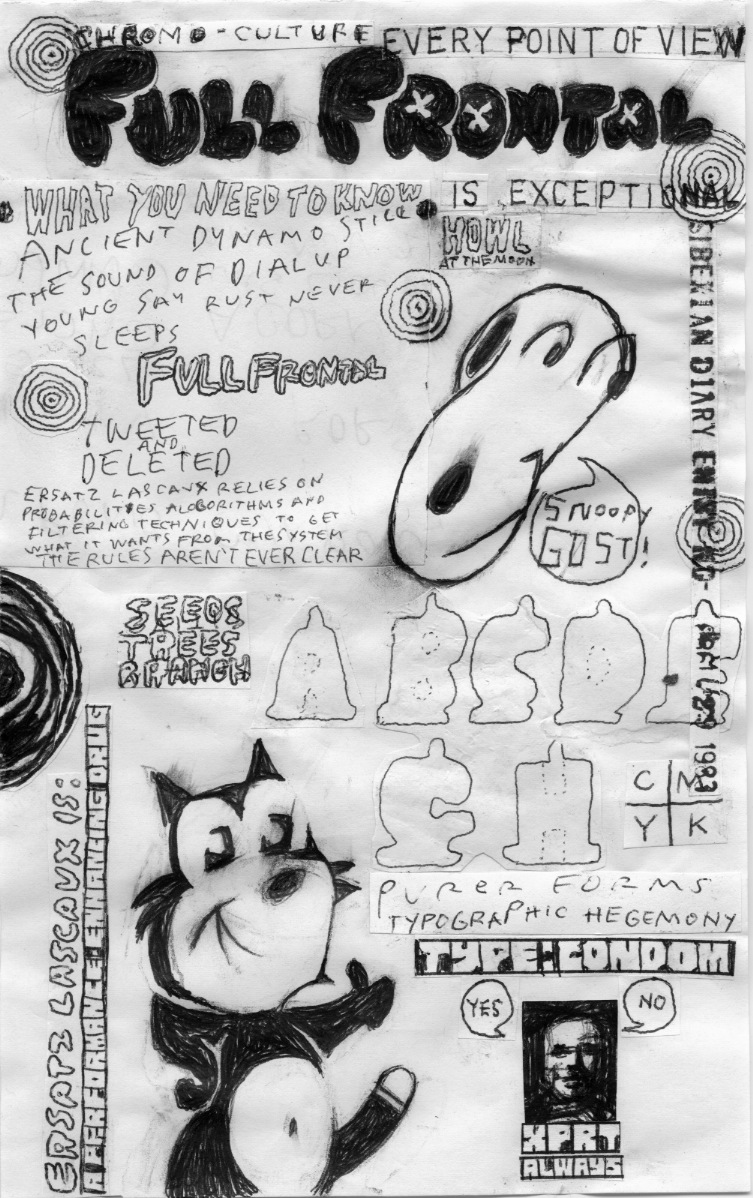 CHROMO-CULTURE
EVERY POINT OF VIEW
FULL FRONTAL
WHAT YOU NEED TO KNOW
IS EXCEPTIONAL
ANCIENT DYNAMO STILL
THE SOUND OF DIAL UP
YOUNG SAY RUST NEVER
SLEEPS
HOWL
AT THE MOON
FULL FRONTAL
TWEETED
AND
DELETED
ERSATZ LASCAUX RELIES ON
PROBABILITIES ALGORITHMS AND
FILTERING TECHNIQUES TO GET
WHAT IT WANTS FROM THE SYSTEM
THE RULES AREN'T EVER CLEAR
SNOOPY
GOST!
SIBERIAN DIARY ENTRY NO-
1983
SEEDS
TREES
BRANCH
A B C D
E H
C M
Y K
PURER FORMS
TYPOGRAPHIC HEGEMONY
TYPE:CONDOM
YES
NO
XPRT
ALWAYS
ERSATZ LASCAUX IS:
A PERFORMANCE ENHANCING DRUG